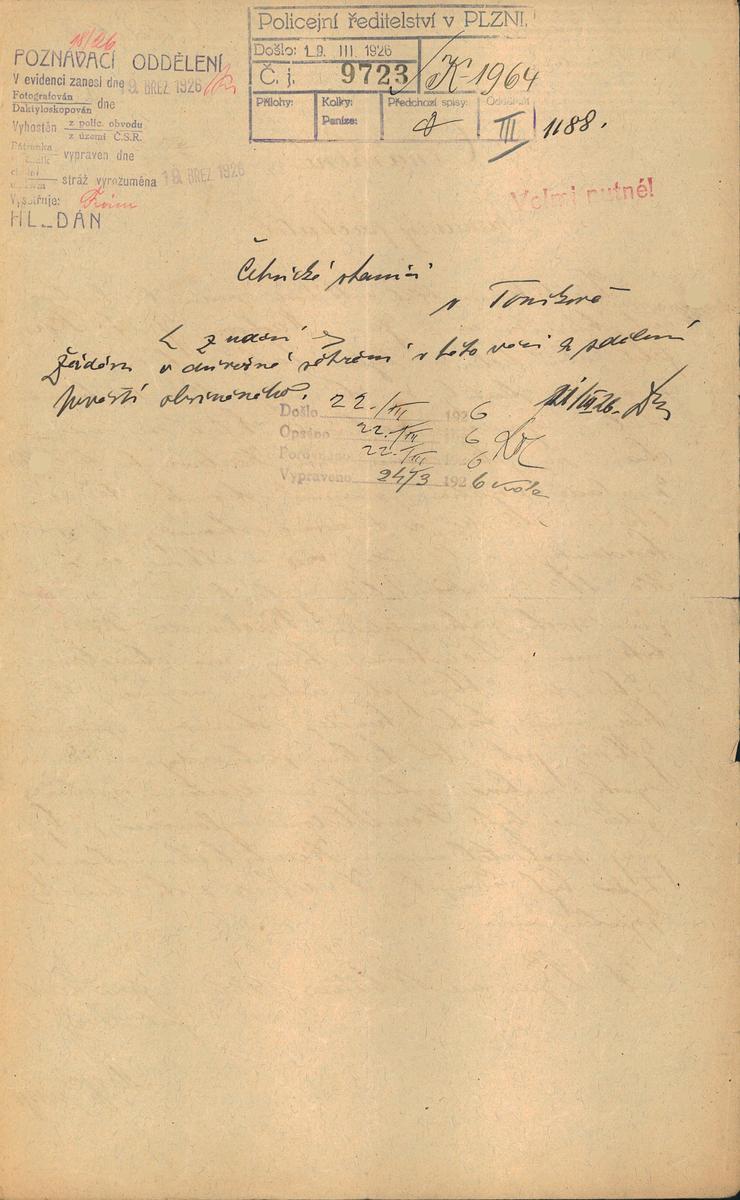 18/26
POZNÁVACÍ ODDĚLENÍ
V evidenci zanesl dne 19. BŘEZ 1926
Fotografován
Daktyloskopován dne
Vyhoštěn z polic. obvodu
z území Č.S.R.
Pátranka
vypraven dne
stráž vyrozuměna 19. BŘEZ 1926
Vyšetřuje:
HL_DÁN
Policejní ředitelství v PLZNI.
Došlo: 19. III. 1926
Č. j. 9723 K-1964
Přílohy: Kolky: Peníze: Předchozí spisy: Oddělení
III 1188.
Velmi nutné!
Četnické stanici
v
< z udání >
Žádám o důvěrné šetření v této věci a sdělení
pověsti obviněného.
21/III 26.
Došlo 22./III 1926
Opsáno 22./III 6
22./III 6
Vypraveno 24/3 1926